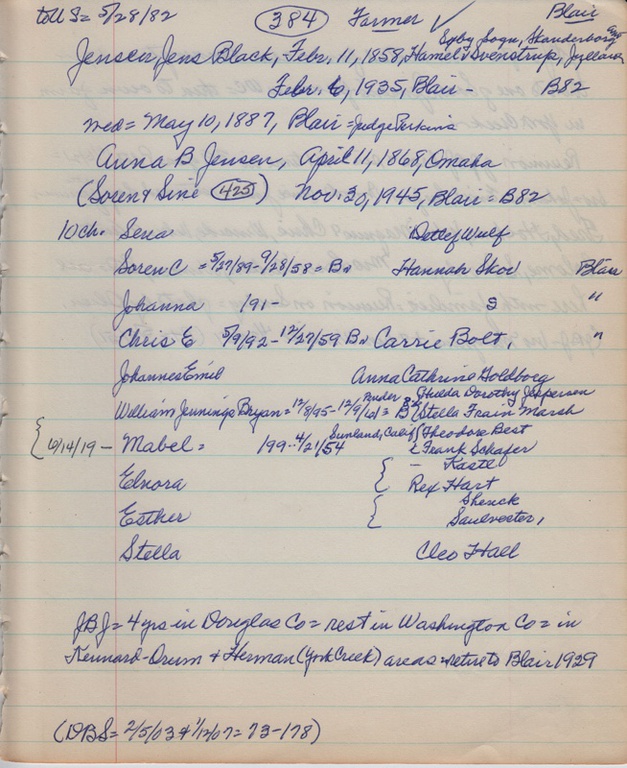 toll S= 5/28/82 (384) Farmer ✓ Blair
Egby Sogn, Skanderborg
Jensen, Jens Black, Febr. 11, 1858, Hamel & Svenstrup, Jylland
Febr. 6, 1935, Blair - B82
med = May 10, 1887, Blair = Judge Perkins
Anna B Jensen, April 11, 1868, Omaha
(Soren & Sine (425) Nov. 30, 1945, Blair = B82
10 ch. Sena Detlef Wulf
Soren C = 5/27/89-9/28/58 = Bn Hannah Skov Blair
Johanna 191- S "
Chris E 5/9/92-12/27/59 Bn Carrie Bolt, "
Johannes Emil Anna Cathrine Goldborg
Hulda Dorothy Jeppersen
William Jennings Bryan = 12/8/95-12/9/61 = B Stella Frain Marsh
{6/14/19 - Mabel = 199- 4/21/54 Sunland, Calif { Theodore Best
& Frank Schafer
{ - Kastl
Elnora Rex Hart
{ Shenck
Esther Saulveeter,
Stella Cleo Hall
JBJ = 4 yrs in Douglas Co = rest in Washington Co = in
Kennard-Orum & Herman (York Creek) areas = retire to Blair 1929
(DBS = 2/5/03 & 1/12/07 = 73-178)